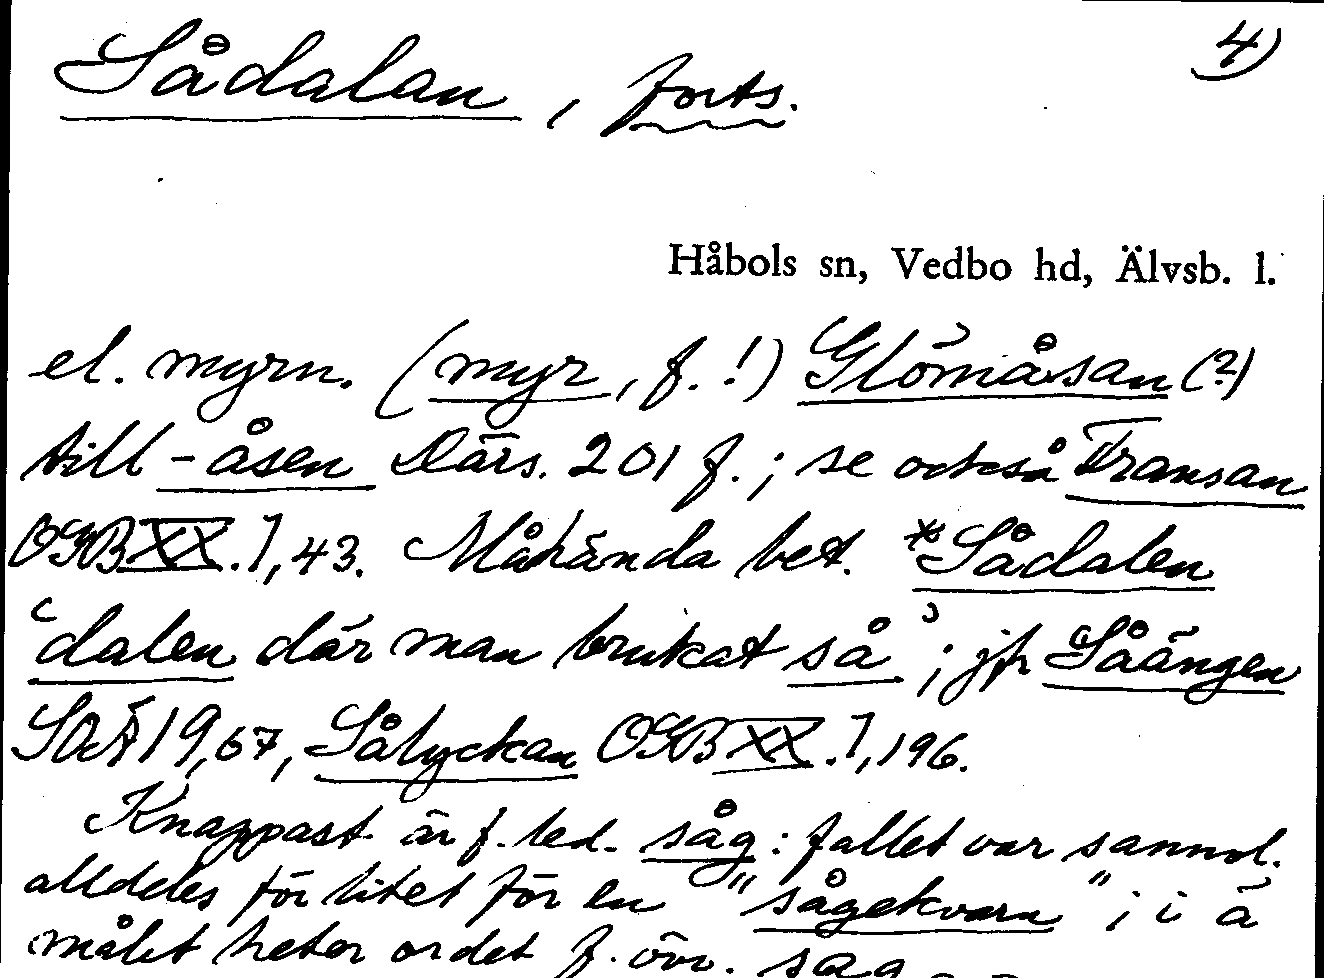 Sådalan, forts. 4)
Håbols sn, Vedbo hd, Älvsb. l.
el. myrn. (myr, f.!) Glömåsan (?)
till -åsen Därs. 201 f.; se också Transan
OGB XX.1, 43. Måhända bet. *Sådalen
'dalen där man brukat så'; jfr Såängen
SOÄ 19, 67, Sålyckan OGB XX.1, 196.
Knappast är f. led. såg: fallet var sannol.
alldeles för litet för en "sågekvarn"; i
målet heter ordet f. övr.